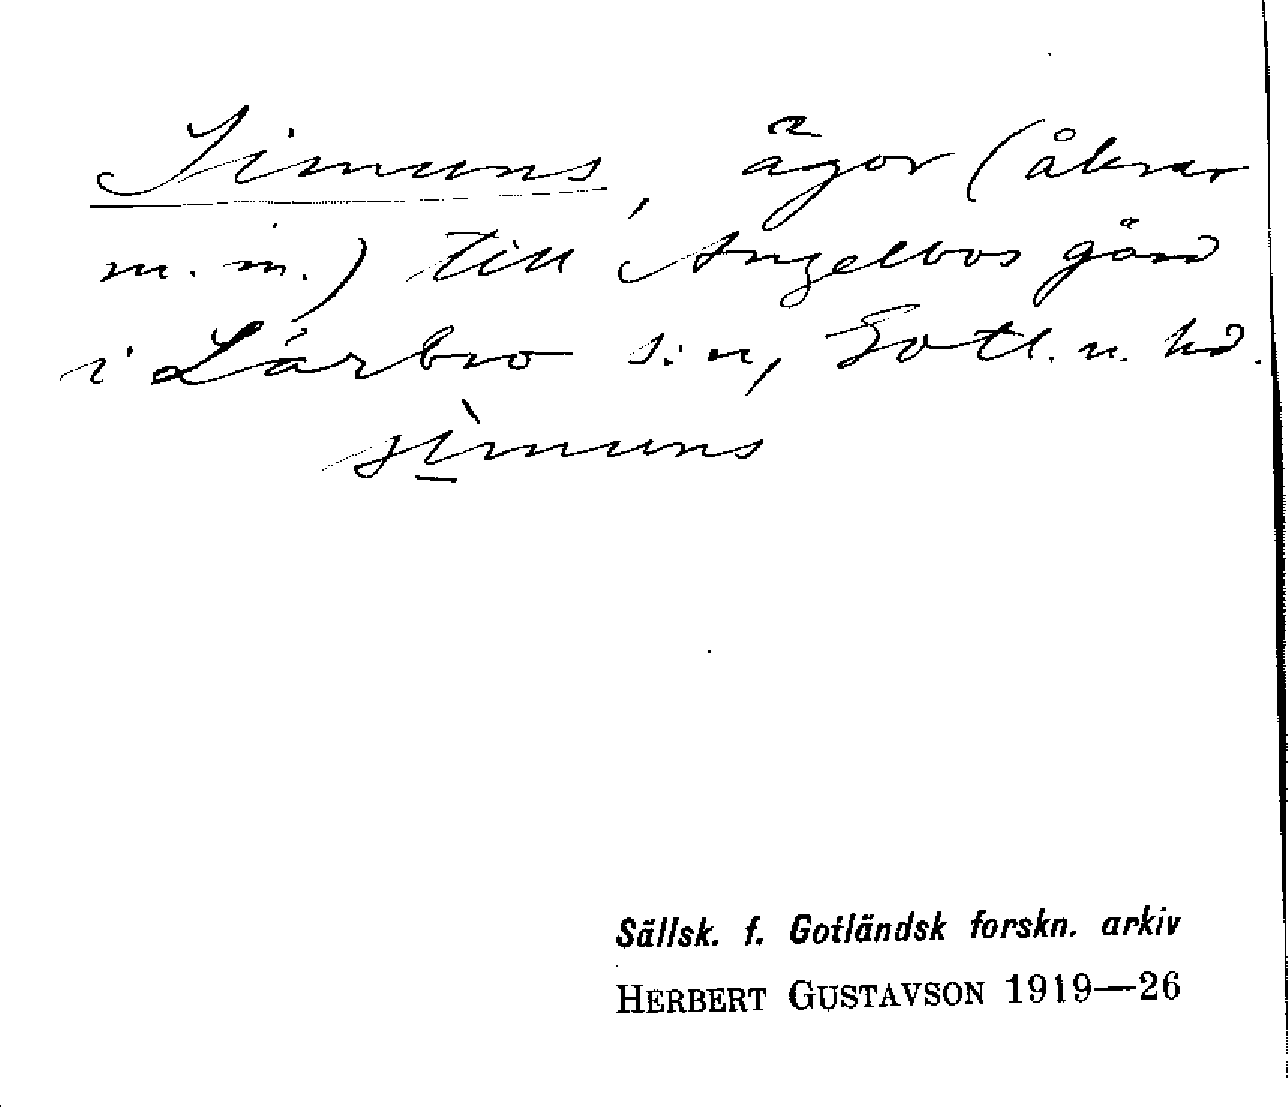 Simuns, ägor (åkrar
m. m.) till Angelbos gård
i Lärbro s:n, Gotl. n. hd.
sìmuns
Sällsk. f. Gotländsk forskn. arkiv
HERBERT GUSTAVSON 1919—26